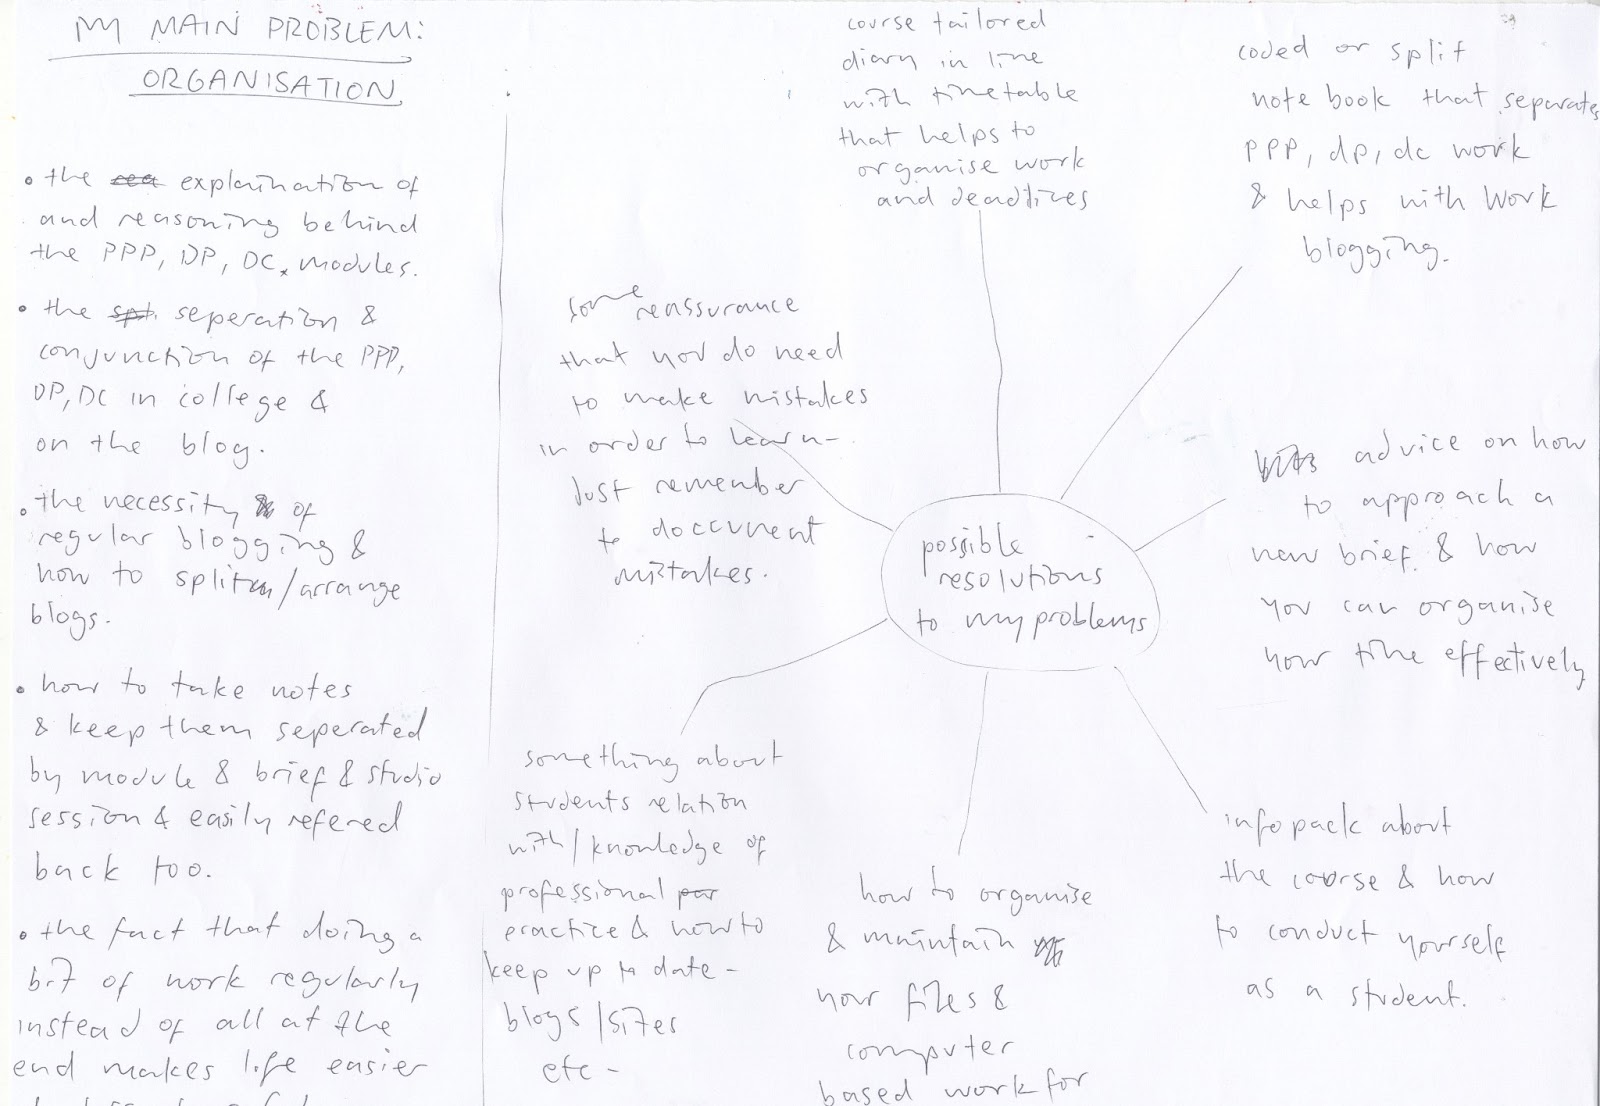 MY MAIN PROBLEM:
ORGANISATION
• the explaination of
and reasoning behind
the PPP, DP, DC, modules.
• the seperation &
conjunction of the PPP,
DP, DC in college &
on the blog.
• the necessity of
regular blogging &
how to split/arrange
blogs.
• how to take notes
& keep them seperated
by module & brief & studio
session & easily refered
back too.
• the fact that doing a
bit of work regularly
instead of all at the
end makes life easier
possible
resolutions
to my problems
some reassurance
that you do need
to make mistakes
in order to learn-
Just remember
to doccument
mistakes.
course tailored
diary in line
with timetable
that helps to
organise work
and deadlines
coded or split
note book that separates
PPP, dp, dc work
& helps with work
blogging.
advice on how
to approach a
new brief. & how
you can organise
your time effectively
info pack about
the course & how
to conduct yourself
as a student.
how to organise
& maintain
your files &
computer
based work for
something about
students relation
with/knowledge of
professional
practice & how to
keep up to date -
blogs/sites
etc -